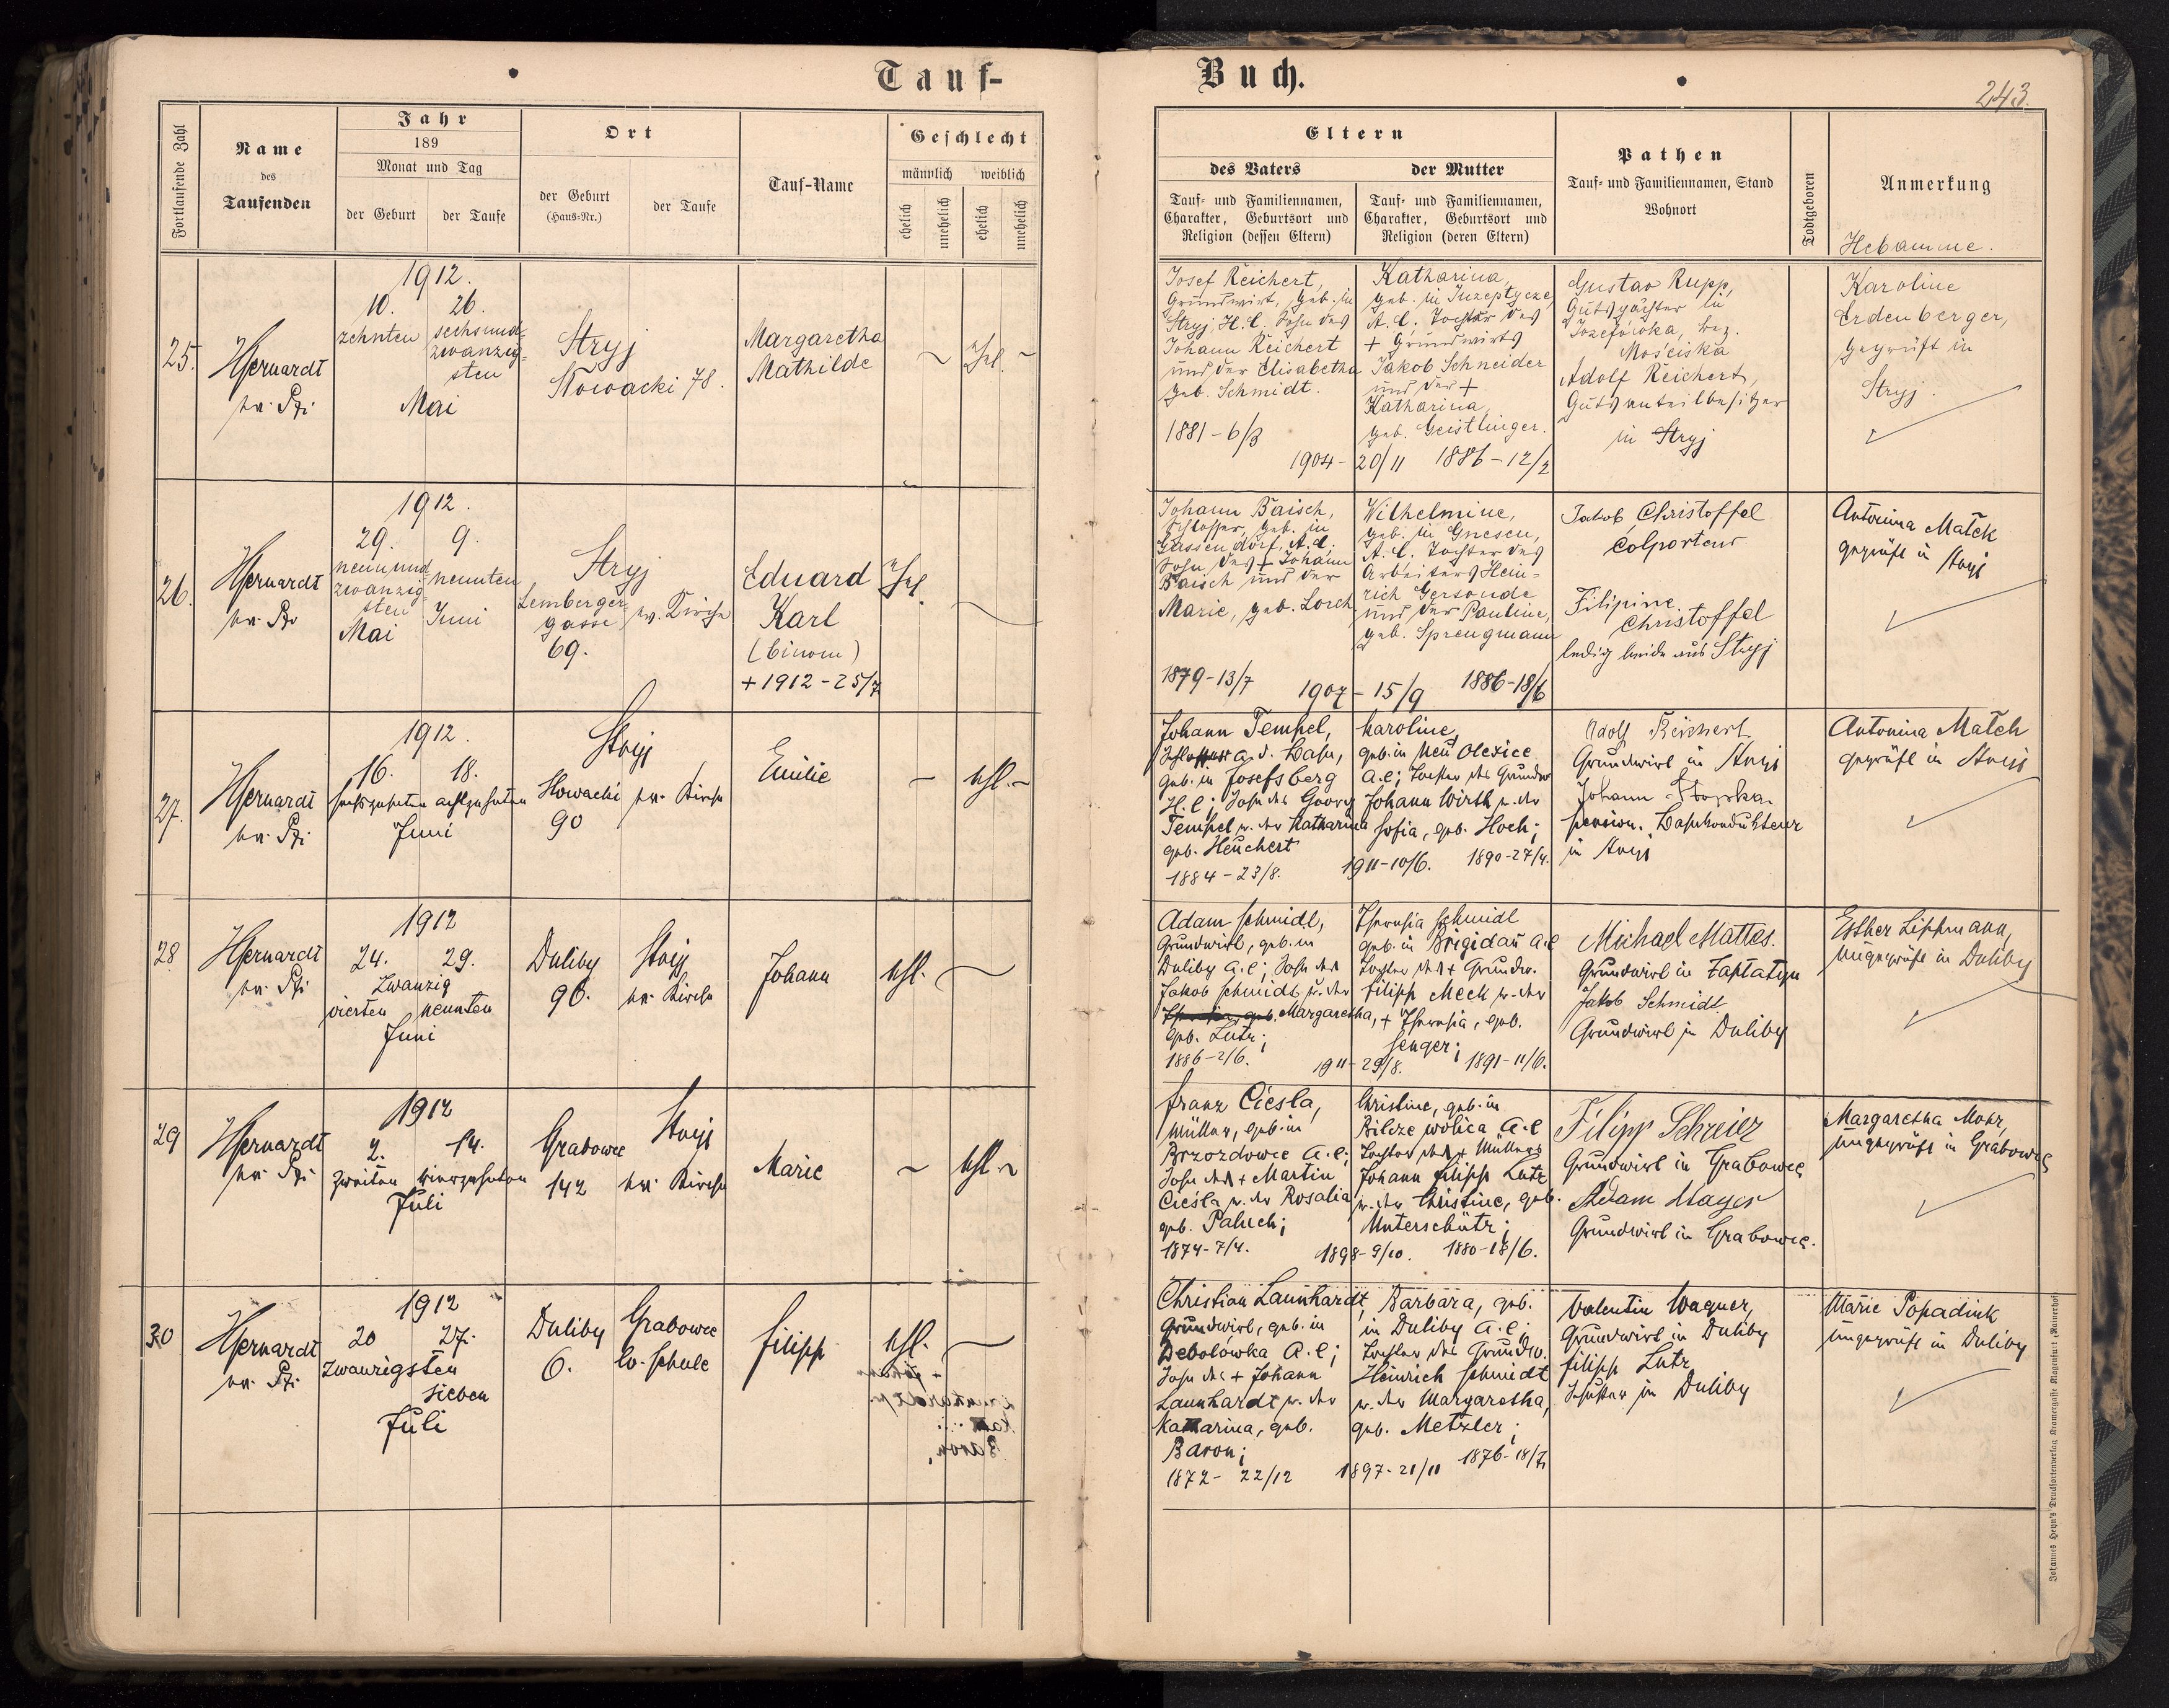 Tauf-
Buch.
243.
Fortlaufende Zahl
Name
des
Taufenden
Jahr
189
Monat und Tag
der Geburt
der Taufe
Ort
der Geburt
(Haus-Nr.)
der Taufe
Tauf-Name
Geschlecht
männlich weiblich
ehelich
unehelich
ehelich
unehelich
Eltern
des Vaters
der Mutter
Tauf- und Familiennamen,
Charakter, Geburtsort und
Religion (dessen Eltern)
Tauf- und Familiennamen,
Charakter, Geburtsort und
Religion (deren Eltern)
Pathen
Tauf- und Familiennamen, Stand
Wohnort
Todtgeboren
Anmerkung
Hebamme.
25.
1912.
10. 26.
zehnten
sechsund-
zwanzig-
sten
Mai
Stryj
Slowacki 78.
Margaretha
Mathilde
Ehel.
Josef Reichert,
Grundwirt, geb. in
Stryj H.C. Sohn des
Johann Reichert
und der Elisabetha
geb. Schmidt.
1881-6/3
1904-20/11
Katharina,
A.C. Tochter des
+ Grundwirts
Jakob Schneider
und der +
Katharina,
geb. Geistlinger.
1886-12/2
Gustav Rupp,
Gutspächter in
Josefówka, bez.
Mościska
Adolf Reichert,
Gutsanteilbesitzer
in Stryj
Karoline
Erdenberger,
geprüft in
Stryj.
26.
1912.
29. 9.
neunund
zwanzig-
sten
Mai
neunten
Juni
Stryj
Lemberger-
gasse
69.
ev. Kirche
Eduard
Karl
(binom)
+ 1912-25/7
Ehel.
Johann Baisch,
Schlosser, geb. in
Gassendorf, A.C.
Sohn des + Johann
Baisch und der
Marie, geb. Lorch
1879-13/7
1907-15/9
Wilhelmine,
geb. in Gnesen,
A.C. Tochter des
Arbeiters Hein-
rich Gersonde
und der Pauline,
geb. Sprengmann
1886-18/6
Jakob Christoffel
Colporteur
Filipine
Christoffel
ledig beide aus Stryj
Antonina Matek
geprüft in Stryj
27.
1912.
16. 18.
sechszehnten achtzehnten
Juni
Stryj
Slowacki
90
Kirche
Emilie
ehl.
Johann Tempel,
Schlosser a. d. Bahn,
geb. in Josefsberg
H.C; Sohn des Georg
Tempel u. der Katharina
geb. Heuchert
1884-23/8.
1911-10/6.
Karoline,
geb. in Neu Olexice
A.C; Tochter des Grundw.
Johann Wirth u. der
Sofia, geb. Hoch;
1890-27/4.
Adolf Reichert
Grundwirt in Stryj
Johann
pension. Bahnkondukteur
in Stryj
Antonina Matek
geprüft in Stryj
28
1912
24. 29.
Zwanzig
vierten neunten
Juni
Duliby
96.
Stryj
Kirche
Johann
ehl.
Adam Schmidt,
Grundwirt, geb. in
Duliby A.C; Sohn des
Jakob Schmidt u. der
Margaretha,
geb. Lutz;
1886-2/6.
1911-29/8.
Theresia Schmidt
geb. in Brigidau A.C
Tochter des + Grundw.
Filipp Meck u. der
+ Theresia, geb.
Senger;
1891-11/6.
Michael Mattes.
Grundwirt in
Jakob Schmidt
Grundwirt in Duliby
Esther Lippmann,
ungeprüft in Duliby
29
1912
2. 14.
zweiten vierzehnten
Juli
Grabowce
142
Stryj
Kirche
Marie
ehl.
Franz Ciesla,
Müller, geb. in
Brzozdowce A.C;
Sohn des + Martin
Ciesla u. der Rosalia
geb. Paluch;
1874-7/4.
1898-9/10.
Christine, geb. in
Bilcze wolica A.C
Tochter des + Müllers
Johann Filipp Lutz
u. der Christine, geb.
Unterschütz;
1880-18/6.
Filipp Schreier
Grundwirt in Grabowce
Adam Mayer
Grundwirt in Grabowce.
Margaretha Mohr,
ungeprüft in Grabowce
30
1912
20 27.
Zwanzigsten
sieben
Juli
Duliby
6.
Grabowce
ev. Schule
Filipp
ehl.
Christian Launhardt,
Grundwirt, geb. in
Debolówka A.C;
Sohn des + Johann
Launhardt u. der
Katharina, geb.
Baron;
1872-22/12
1897-21/11
Barbara, geb.
in Duliby A.C;
Tochter des Grundw.
Heinrich Schmidt
u. der Margaretha,
geb. Metzler;
1876-18/7
Valentin Wagner,
Grundwirt in Duliby
Filipp Lutz
Schuster in Duliby
Marie Popadiuk
ungeprüft in Duliby